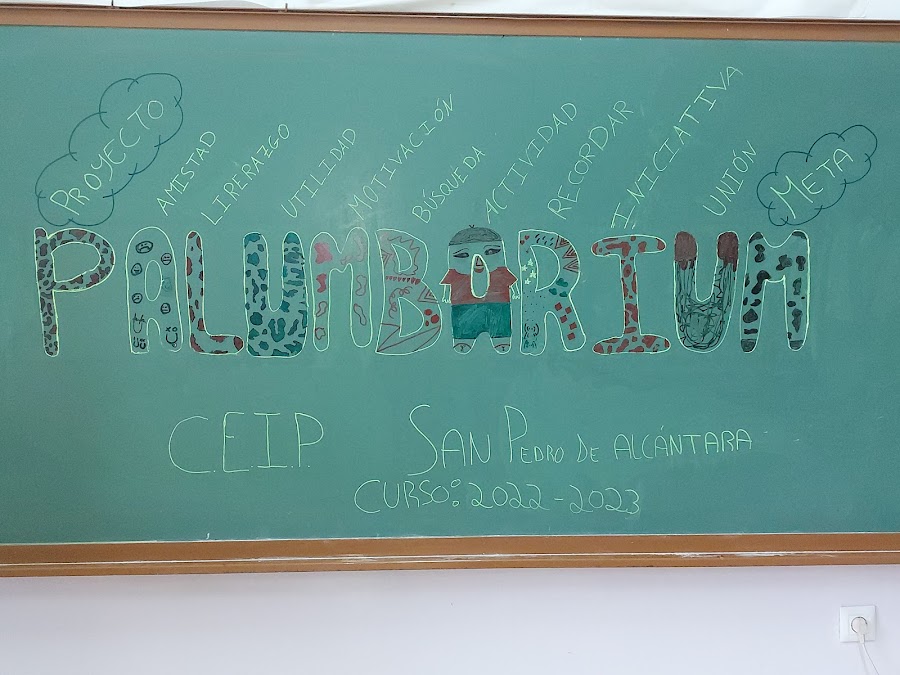 PROYECTO
AMISTAD
LIPERAZGO
UTILIDAD
MOTIVACIÓN
BÚSQUEDA
ACTIVIDAD
RECORDAR
INICIATIVA
UNIÓN
META
PALUMBARIUM
C.E.I.P. SAN PEDRO DE ALCÁNTARA
CURSO: 2022-2023